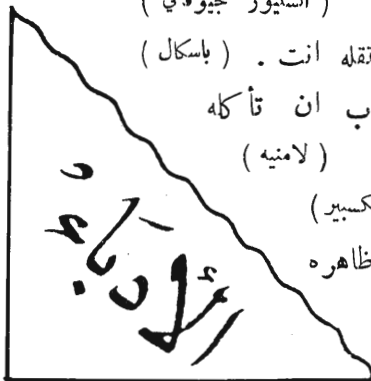 ( السنيور
تقله انت . ( باسكال )
ب ان تأكله
( لامنيه )
كسبير )
ظاهره
الأدباء